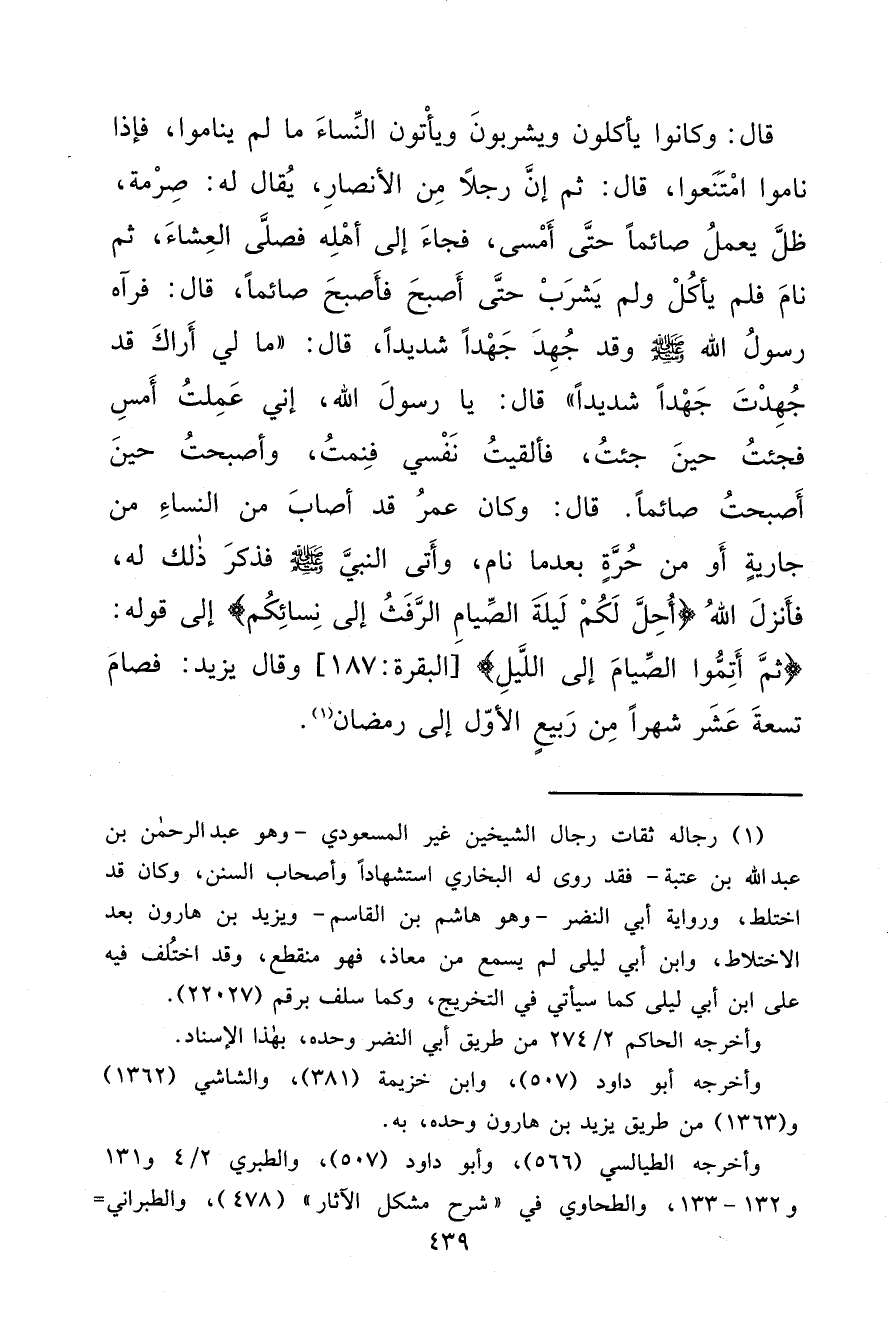 قال: وكانوا يأكلون ويشربونَ ويأْتون النِّساءَ ما لم يناموا، فإذا
ناموا امْتَنَعوا، قال: ثم إنَّ رجلاً مِن الأنصارِ، يُقال له: صِرْمة،
ظلَّ يعملُ صائماً حتَّى أَمْسى، فجاءَ إلى أهْلِه فصلَّى العِشاءَ، ثم
نامَ فلم يأكُلْ ولم يَشرَبْ حتَّى أَصبحَ فأَصبحَ صائماً، قال: فرآه
رسولُ الله ﷺ وقد جُهِدَ جَهْداً شديداً، قال: «ما لي أَراكَ قد
جُهِدْتَ جَهْداً شديداً» قال: يا رسولَ الله، إني عَمِلتُ أَمسِ
فجئتُ حينَ جئتُ، فألقيتُ نَفْسي فنِمتُ، وأصبحتُ حينَ
أَصبحتُ صائماً. قال: وكان عمرُ قد أصابَ من النساءِ من
جاريةٍ أَو من حُرَّةٍ بعدما نام، وأَتى النبيَّ ﷺ فذكرَ ذٰلك له،
فأَنزلَ اللهُ ﴿أُحِلَّ لَكُمْ لَيلَةَ الصِّيامِ الرَّفَثُ إلى نِسائِكُم﴾ إلى قوله:
﴿ثمَّ أَتِمُّوا الصِّيامَ إلى اللَّيلِ﴾ [البقرة:١٨٧] وقال يزيد: فصامَ
تسعةَ عَشَر شهراً مِن رَبيعٍ الأوّل إلى رمضان(١).
(١) رجاله ثقات رجال الشيخين غير المسعودي -وهو عبدالرحمٰن بن
عبدالله بن عتبة- فقد روى له البخاري استشهاداً وأصحاب السنن، وكان قد
اختلط، ورواية أبي النضر -وهو هاشم بن القاسم- ويزيد بن هارون بعد
الاختلاط، وابن أبي ليلى لم يسمع من معاذ، فهو منقطع، وقد اختُلف فيه
على ابن أبي ليلى كما سيأتي في التخريج، وكما سلف برقم (٢٢٠٢٧).
وأخرجه الحاكم ٢/ ٢٧٤ من طريق أبي النضر وحده، بهٰذا الإسناد.
وأخرجه أبو داود (٥٠٧)، وابن خزيمة (٣٨١)، والشاشي (١٣٦٢)
و(١٣٦٣) من طريق يزيد بن هارون وحده، به.
وأخرجه الطيالسي (٥٦٦)، وأبو داود (٥٠٧)، والطبري ٢/ ٤ و١٣١
و١٣٢-١٣٣، والطحاوي في «شرح مشكل الآثار» (٤٧٨)، والطبراني=
٤٣٩